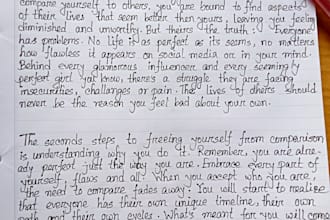 compare yourself to others, you are bound to find aspects
of their lives that seem better then yours, leaving you feeling
diminished and unworthy. But theirs the truth: Everyone
has problems. No life is as perfect as its seems, no matters
how flawless it appears on social media or in your mind.
Behind every glamorous influencer and every seemingly
perfect girl you know, there's a struggle they are facing
insecurities, challenges or pain. The lives of others should
never be the reason you feel bad about your own.
The seconds steps to freeing yourself from comparison
is understanding why you do it. Remember, you are alre-
ady perfect just the way you are. Embrace every part of
yourself, flaws and all. When you accept who you are,
the need to compare fades away. You will start to realize
that everyone has their own unique timeline, their own
path and their own cycles. What's meant for you will come